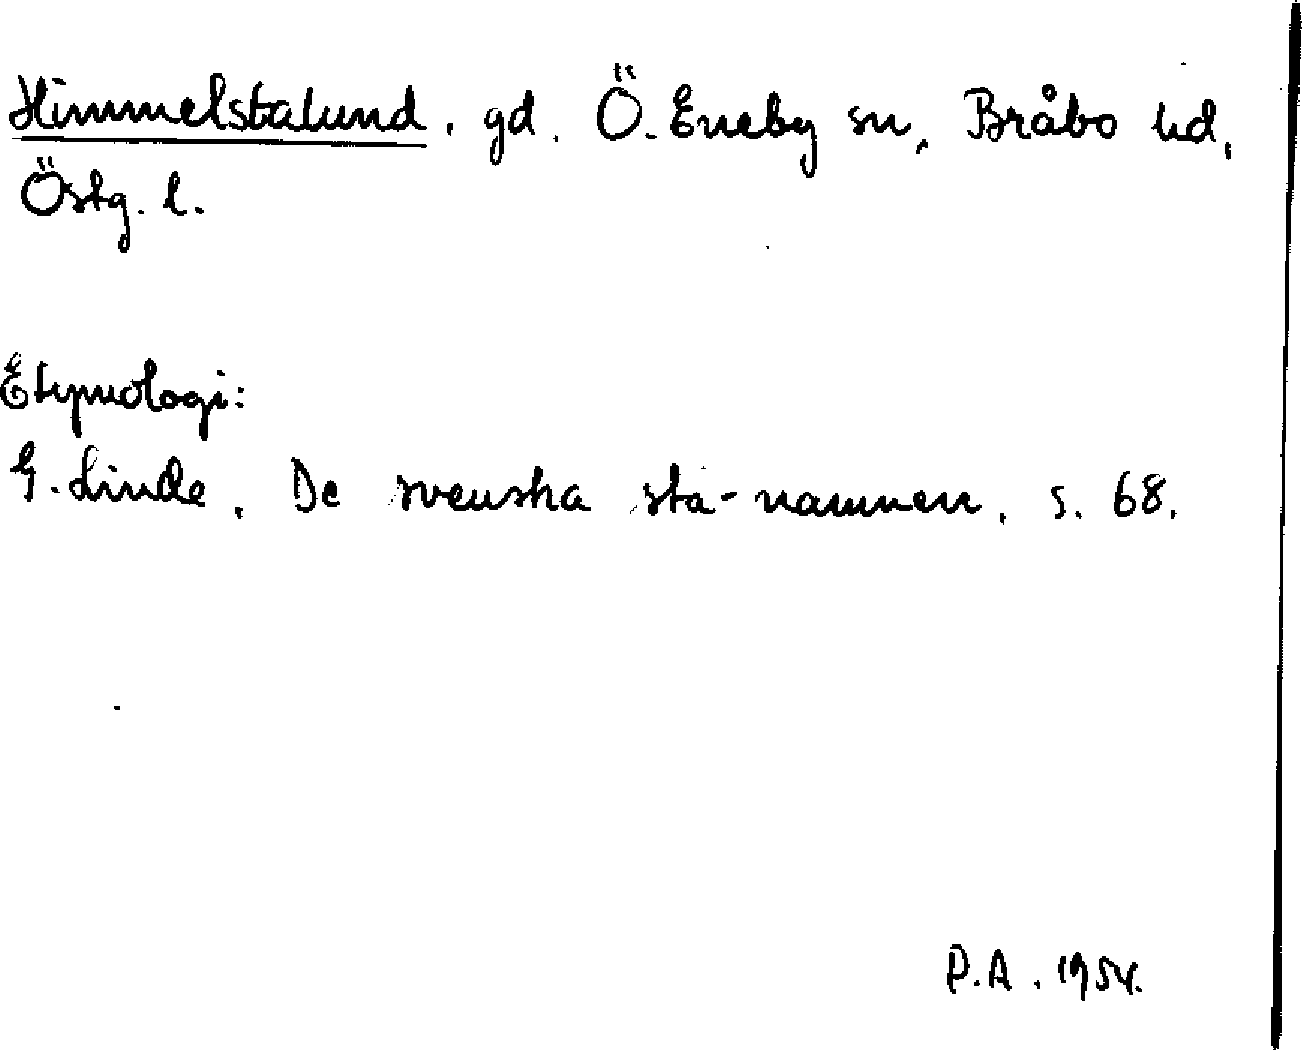 Himmelstalund, gd. Ö. Eneby sn, Bråbo hd,
Östg. l.
Etymologi:
G. Linde, De svenska sta-namnen, s. 68.
P.A. 1954.